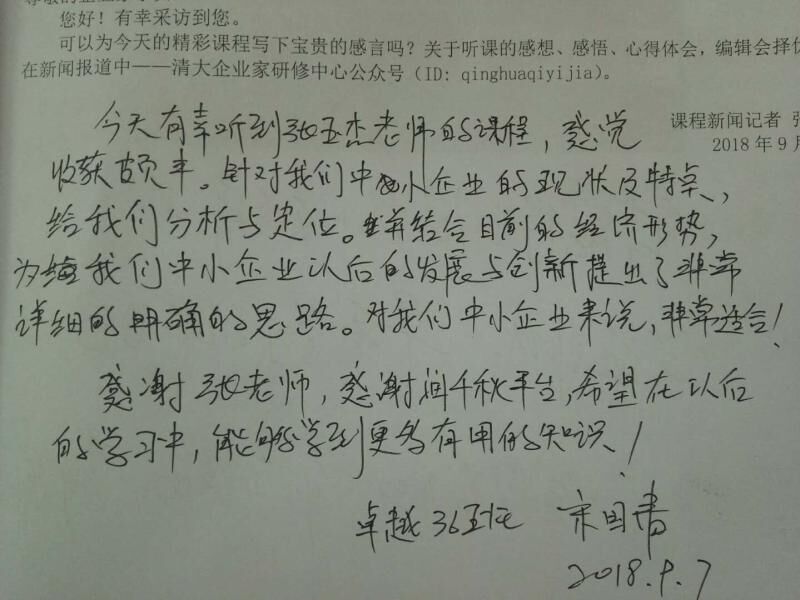 您好！有幸采访到您。
可以为今天的精彩课程写下宝贵的感言吗？关于听课的感想、感悟、心得体会，编辑会择优
在新闻报道中——清大企业家研修中心公众号（ID: qinghuaqiyijia）。
课程新闻记者 张
2018 年 9 月
今天有幸听到张玉杰老师的课程，感觉
收获颇丰。针对我们中小企业的现状及特点、
给我们分析与定位。并结合目前的经济形势，
为我们中小企业以后的发展与创新提出了非常
详细的明确的思路。对我们中小企业来说，非常适合！
感谢张老师，感谢润千秋平台，希望在以后
的学习中，能够学到更多有用的知识！
卓越36班 宋国青
2018.9.7